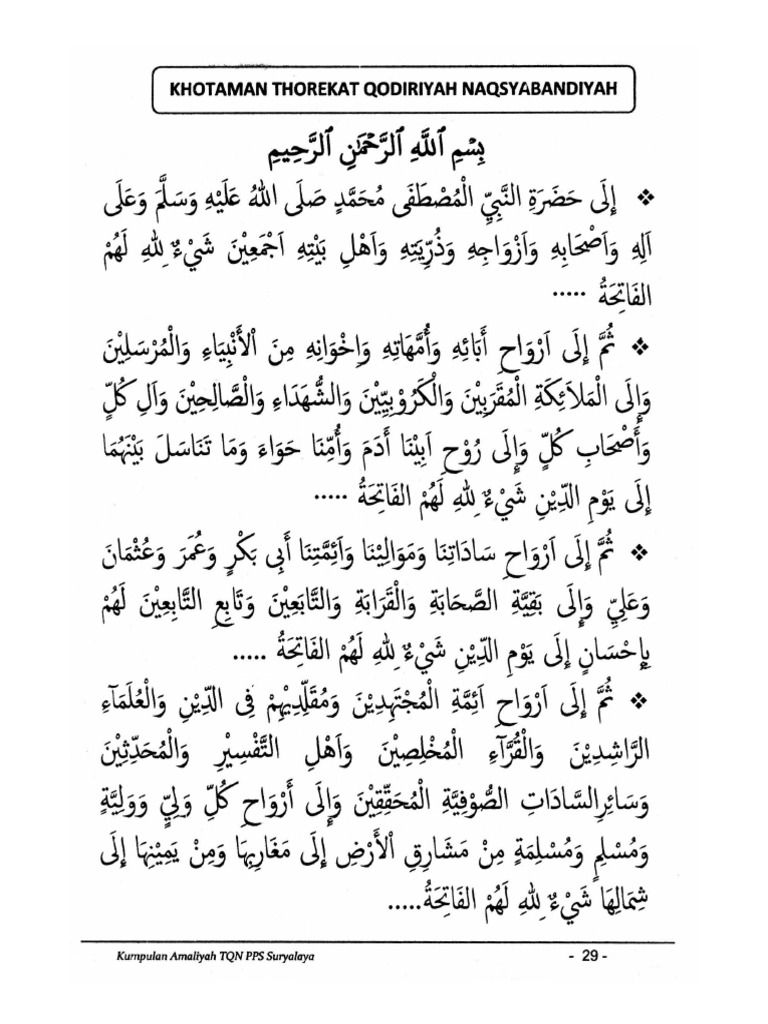 KHOTAMAN THOREKAT QODIRIYAH NAQSYABANDIYAH
بِسْمِ ٱللَّهِ ٱلرَّحْمَٰنِ ٱلرَّحِيمِ
❖ إِلَى حَضَرَةِ النَّبِيِّ الْمُصْطَفَى مُحَمَّدٍ صَلَى اللهُ عَلَيْهِ وَسَلَّمَ وَعَلَى
اَلِهِ وَاَصْحَابِهِ وَاَزْوَاجِهِ وَذُرِّيَتِهِ وَاَهْلِ بَيْتِهِ اَجْمَعِيْنَ شَيْءٌ لِلهِ لَهُمْ
الفَاتِحَةُ .....
❖ ثُمَّ إِلَى اَرْوَاحِ أَبَائِهِ وَأُمَّهَاتِهِ وَاِخْوَانِهِ مِنَ الْأَنْبِيَاءِ وَالْمُرْسَلِيْنَ
وَاِلَى الْمَلَائِكَةِ الْمُقَرَبِيْنَ وَالْكَرُوْبِيِّيْنَ وَالشُّهَدَاءِ وَالصَّالِحِيْنَ وَآلِ كُلٍّ
وَأَصْحَابِ كُلٍّ وَإِلَى رُوْحِ اَبِيْنَا أَدَمَ وَأُمِّنَا حَوَاءَ وَمَا تَنَاسَلَ بَيْنَهُمَا
إِلَى يَوْمِ الدِّيْنِ شَيْءٌ لِلهِ لَهُمْ الفَاتِحَةُ .....
❖ ثُمَّ إِلَى اَرْوَاحِ سَادَاتِنَا وَمَوَالِيْنَا وَاَئِمَّتِنَا أَبِى بَكْرٍ وَعُمَرَ وَعُثْمَانَ
وَعَلِيٍّ وَإِلَى بَقِيَّةِ الصَّحَابَةِ وَالْقَرَابَةِ وَالتَّابَعِيْنَ وَتَابِعِ التَّابِعِيْنَ لَهُمْ
بِإِحْسَانٍ إِلَى يَوْمِ الدِّيْنِ شَيْءٌ لِلهِ لَهُمْ الفَاتِحَةُ .....
❖ ثُمَّ إِلَى اَرْوَاحِ اَئِمَّةِ الْمُجْتَهِدِيْنَ وَمُقَلِّدِيْهِمْ فِى الدِّيْنِ وَالْعُلَمَآءِ
الرَّاشِدِيْنَ وَالْقُرَّآءِ الْمُخْلِصِيْنَ وَاَهْلِ التَّفْسِيْرِ وَالْمُحَدِّثِيْنَ
وَسَائِرِالسَّادَاتِ الصُّوْفِيَّةِ الْمُحَقِّقِيْنَ وَإِلَى أَرْوَاحِ كُلِّ وَلِيٍّ وَوَلِيَّةٍ
وَمُسْلِمٍ وَمُسْلِمَةٍ مِنْ مَشَارِقِ الْأَرْضِ إِلَى مَغَارِبِهَا وَمِنْ يَمِيْنِهَا إِلَى
شِمَالِهَا شَيْءٌ لِلهِ لَهُمْ الفَاتِحَةُ.....
Kumpulan Amaliyah TQN PPS Suryalaya
- 29 -